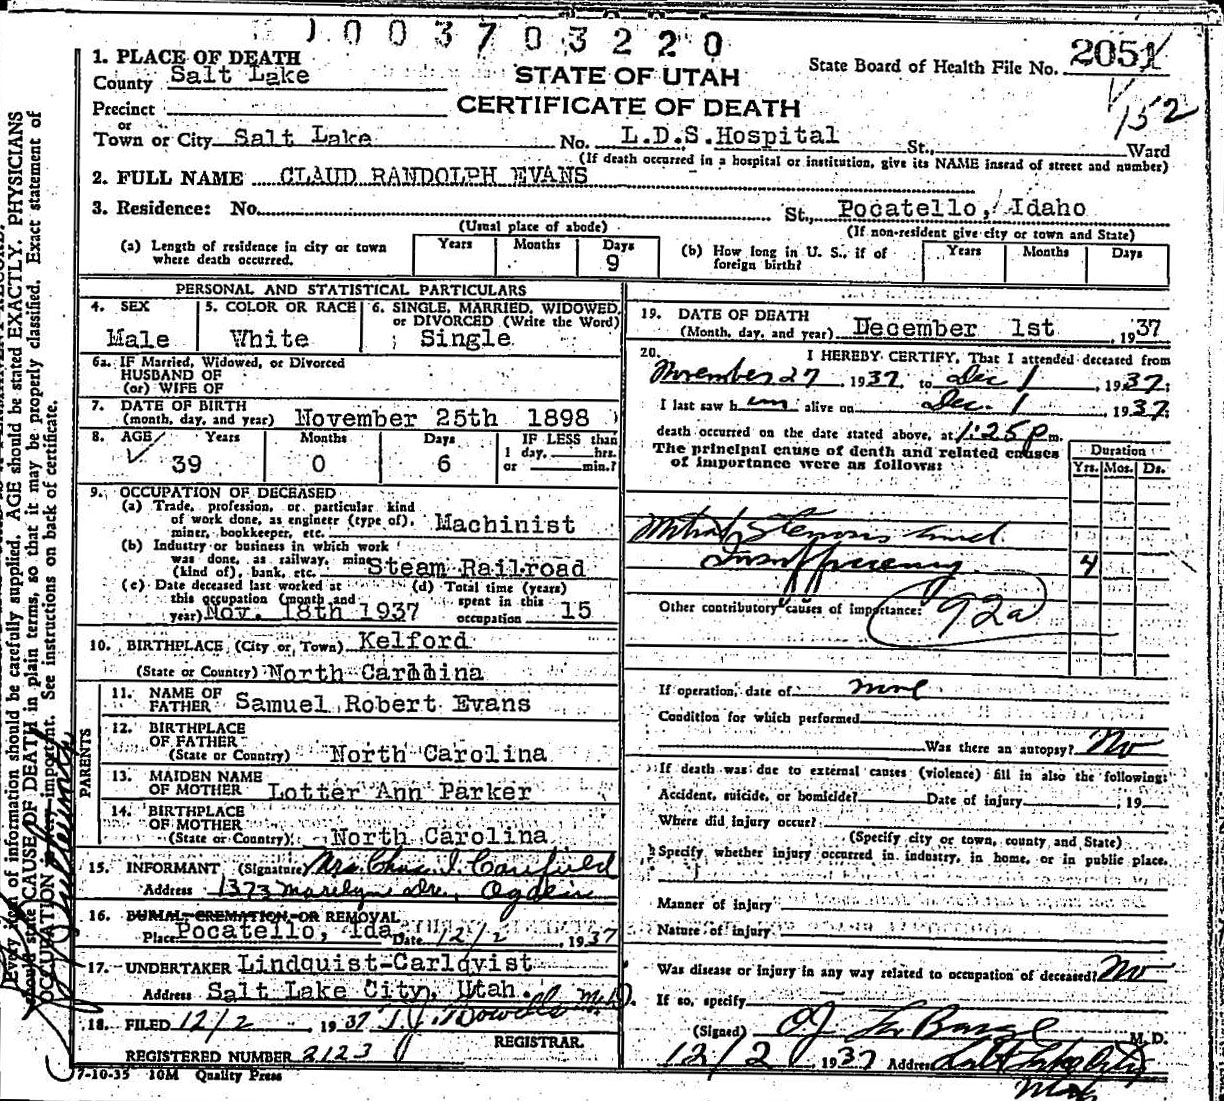 1003703220
1. PLACE OF DEATH
County Salt Lake
STATE OF UTAH
State Board of Health File No. 2051
Precinct
CERTIFICATE OF DEATH
152
or
Town or City Salt Lake No. L.D.S.Hospital St., Ward
(If death occurred in a hospital or institution, give its NAME insead of street and number)
2. FULL NAME CLAUD RANDOLPH EVANS
3. Residence: No. St., Pocatello, Idaho
(Usual place of abode) (If non-resident give city or town and State)
(a) Length of residence in city or town where death occurred. Years Months Days 9
(b) How long in U. S., if of foreign birth? Years Months Days
PERSONAL AND STATISTICAL PARTICULARS
4. SEX Male
5. COLOR OR RACE White
6. SINGLE, MARRIED, WIDOWED, or DIVORCED (Write the Word) Single
6a. IF Married, Widowed, or Divorced
HUSBAND OF
(or) WIFE OF
7. DATE OF BIRTH
(month, day, and year) November 25th 1898
8. AGE Years Months Days IF LESS than
39 0 6 1 day, hrs.
or min.?
9. OCCUPATION OF DECEASED
(a) Trade, profession, or particular kind
of work done, as engineer (type of), Machinist
miner, bookkeeper, etc.
(b) Industry or business in which work
was done, as railway, mine
(kind of), bank, etc. Steam Railroad
(c) Date deceased last worked at this occupation (month and year) Nov. 18th 1937
(d) Total time (years) spent in this occupation 15
10. BIRTHPLACE (City or Town) Kelford
(State or Country) North Carolina
PARENTS
11. NAME OF
FATHER Samuel Robert Evans
12. BIRTHPLACE
OF FATHER
(State or Country) North Carolina
13. MAIDEN NAME
OF MOTHER Lotter Ann Parker
14. BIRTHPLACE
OF MOTHER
(State or Country) North Carolina
15. INFORMANT (Signature) Mrs. Chas. I. Canfield
Address 1373 Marilyn Dr., Ogden
16. BURIAL, CREMATION, OR REMOVAL
Place Pocatello, Ida Date 12/2, 1937
17. UNDERTAKER Lindquist-Carlqvist
Address Salt Lake City, Utah.
18. FILED 12/2, 1937 M.D.
REGISTRAR.
REGISTERED NUMBER 2123
7-10-35 10M Quality Press
19. DATE OF DEATH
(Month, day, and year) December 1st, 1937
20. I HEREBY CERTIFY, That I attended deceased from
November 27, 1937, to Dec 1, 1937;
I last saw him alive on Dec. 1, 1937;
death occurred on the date stated above, at 1:25 p m.
The principal cause of death and related causes
of importance were as follows:
Duration
Yrs. Mos. Ds.
Mitral Stenosis and
Insufficiency 4
Other contributory causes of importance: 92a
If operation, date of none
Condition for which performed
Was there an autopsy? No
If death was due to external causes (violence) fill in also the following:
Accident, suicide, or homicide? Date of injury, 19
Where did injury occur?
(Specify city or town, county and State)
Specify whether injury occurred in industry, in home, or in public place.
Manner of injury
Nature of injury
Was disease or injury in any way related to occupation of deceased? No
If so, specify
(Signed) O.J. La Barge M. D.
12/2 1937 Address Salt Lake City
Utah
Every item of information should be carefully supplied. AGE should be stated EXACTLY. PHYSICIANS
should state CAUSE OF DEATH in plain terms, so that it may be properly classified. Exact statement of
OCCUPATION is very important. See instructions on back of certificate.